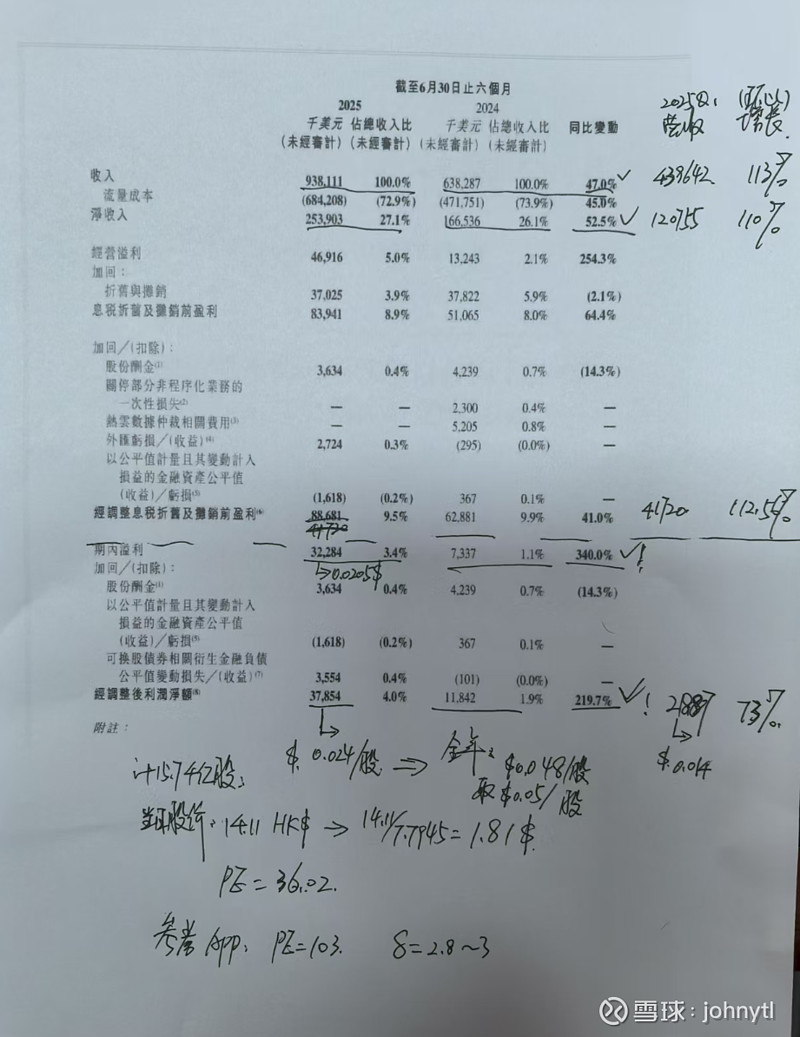 截至6月30日止六個月
2025 2024
千美元 佔總收入比 千美元 佔總收入比 同比變動
(未經審計) (未經審計) (未經審計) (未經審計)
2025Q1 (环比)
营收 增长
收入 938,111 100.0% 638,287 100.0% 47.0% ✓ 439642 113%
流量成本 (684,208) (72.9%) (471,751) (73.9%) 45.0%
淨收入 253,903 27.1% 166,536 26.1% 52.5% ✓ 120755 110%
經營溢利 46,916 5.0% 13,243 2.1% 254.3%
加回：
折舊與攤銷 37,025 3.9% 37,822 5.9% (2.1%)
息稅折舊及攤銷前盈利 83,941 8.9% 51,065 8.0% 64.4%
加回／(扣除)：
股份酬金(1) 3,634 0.4% 4,239 0.7% (14.3%)
關停部分非程序化業務的
一次性損失(2) — — 2,300 0.4% —
熱雲數據仲裁相關費用(3) — — 5,205 0.8% —
外匯虧損／(收益)(4) 2,724 0.3% (295) (0.0%) —
以公平值計量且其變動計入
損益的金融資產公平值
(收益)／虧損(5) (1,618) (0.2%) 367 0.1% —
經調整息稅折舊及攤銷前盈利(6) 88,681 9.5% 62,881 9.9% 41.0% 41720 112.5%
41720
期內溢利 32,284 3.4% 7,337 1.1% 340.0% ✓!
加回／(扣除)：
→0.0205$
股份酬金(1) 3,634 0.4% 4,239 0.7% (14.3%)
以公平值計量且其變動計入
損益的金融資產公平值
(收益)／虧損(5) (1,618) (0.2%) 367 0.1% —
可換股債券相關衍生金融負債
公平值變動損失／(收益)(7) 3,554 0.4% (101) (0.0%) —
經調整後利潤淨額(8) 37,854 4.0% 11,842 1.9% 219.7% ✓! 73%
附註：
$0.014
计15.74亿股： $0.024/股 ⇒ 全年：$0.048/股
取$0.05/股
当前股价：14.11 HK$ → 14.11/7.7945=1.81$
PE=36.02.
参考APP：PE=103. δ=2.8~3
雪球：johnytl